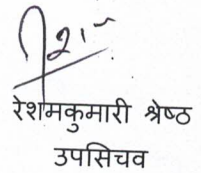 रेशमकुमारी श्रेष्ठ
उपसिचव